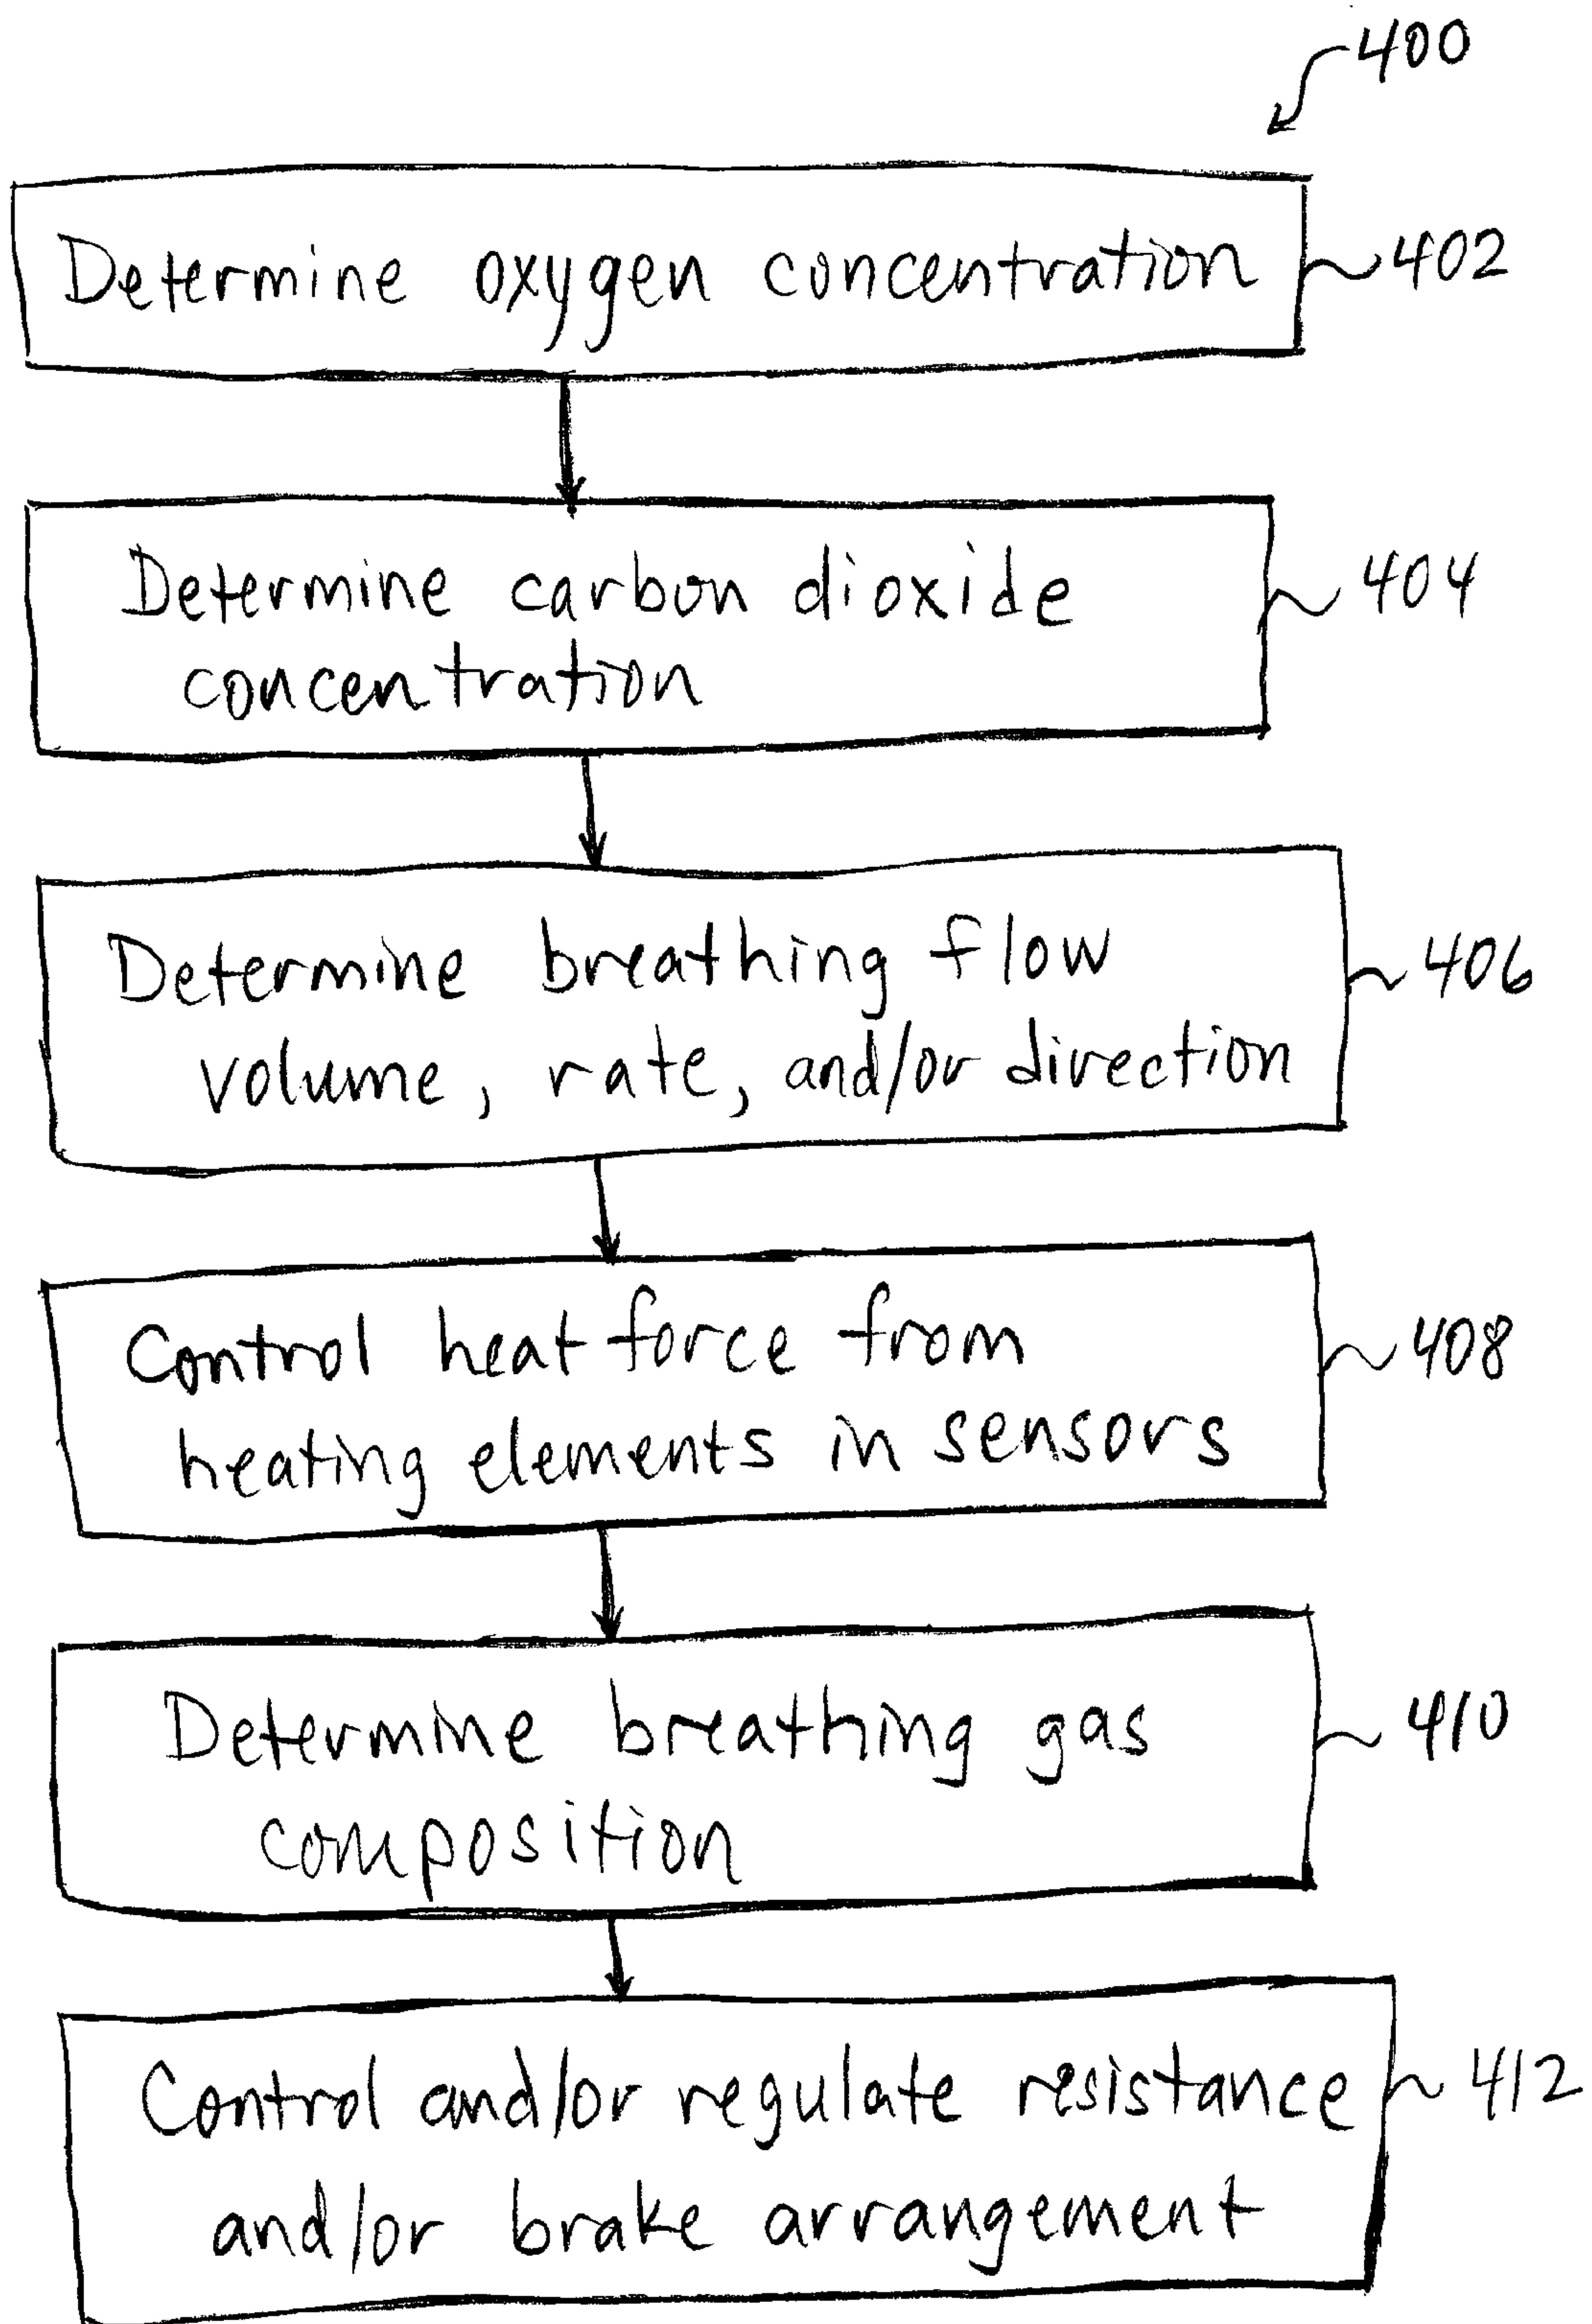 400
Determine oxygen concentration
402
Determine carbon dioxide
concentration
404
Determine breathing flow
volume, rate, and/or direction
406
Control heat force from
heating elements in sensors
408
Determine breathing gas
composition
410
Control and/or regulate resistance
and/or brake arrangement
412